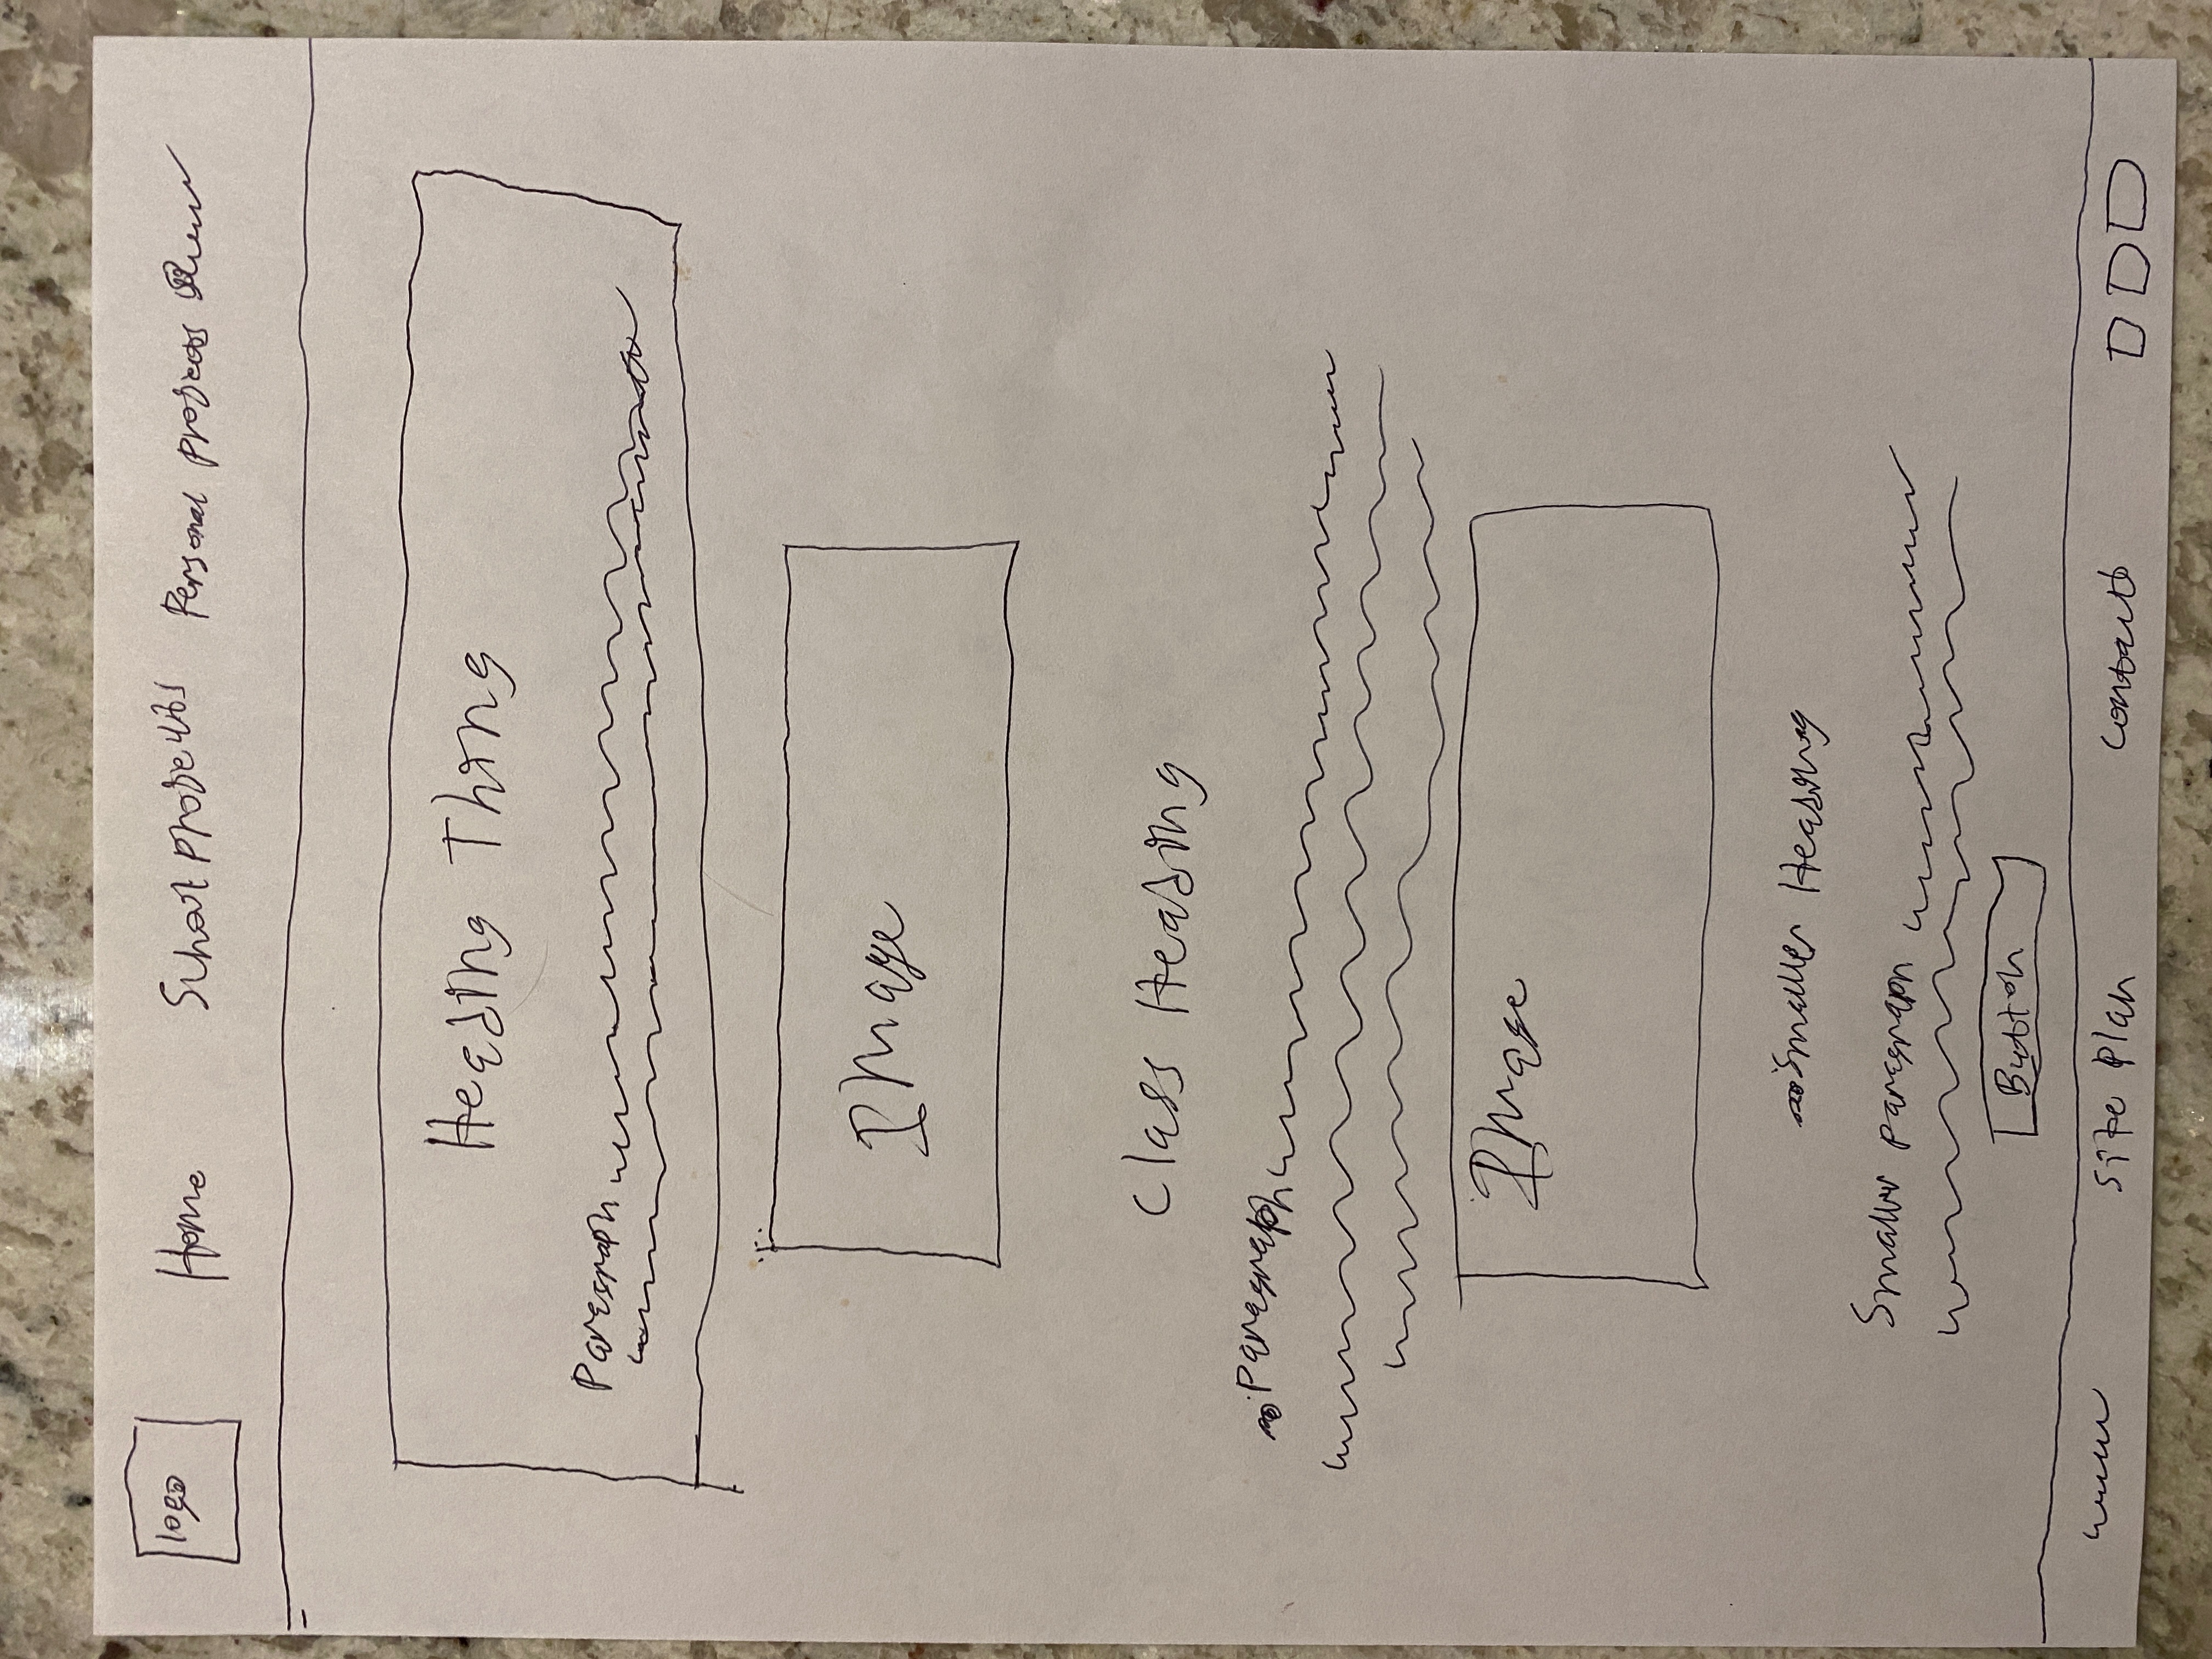 logo Home School projects Personal projects
Heading Thing
Paragraph
Image
Class Heading
Paragraph
Image
Smaller Heading
Smaller paragraph
Button
Site Plan Contact